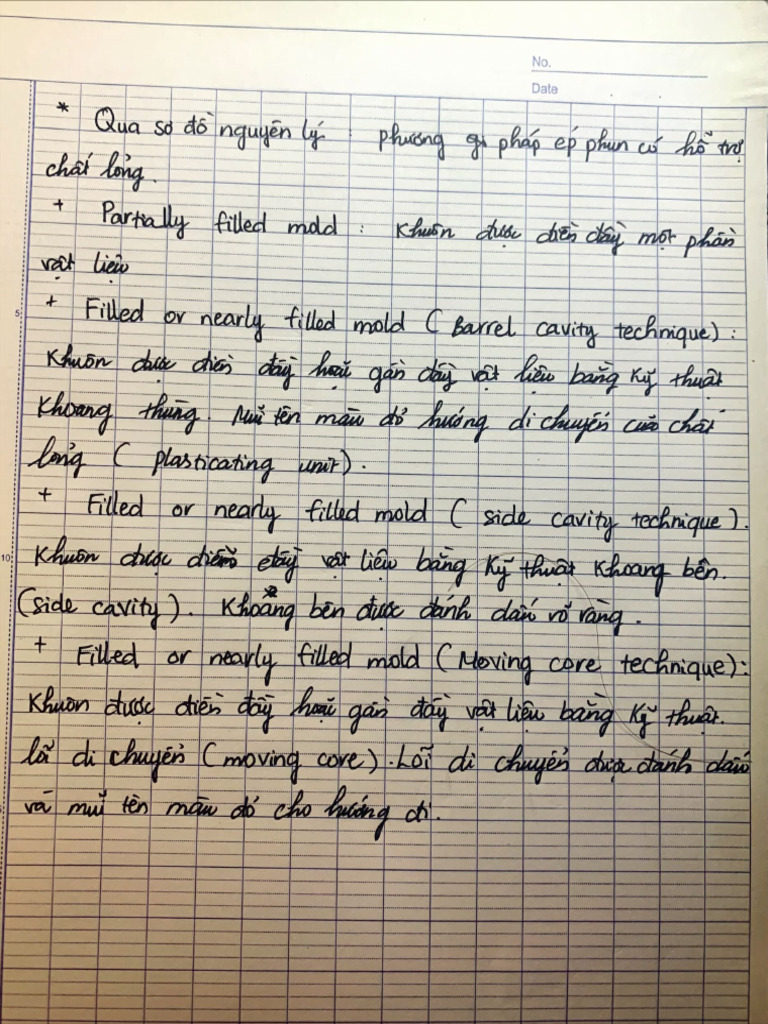 No.
Date
* Qua sơ đồ nguyên lý : phương pháp ép phun có hỗ trợ
chất lỏng.
+ Partially filled mold : Khuôn được điền đầy một phần
vật liệu
5
+ Filled or nearly filled mold ( Barrel cavity technique) :
Khuôn được điền đầy hoặc gần đầy vật liệu bằng kỹ thuật
khoang thùng. Mũi tên màu đỏ hướng di chuyển của chất
lỏng ( plasticating unit).
+ Filled or nearly filled mold ( side cavity technique).
10
Khuôn được điền đầy vật liệu bằng kỹ thuật khoang bên.
(side cavity). Khoang bên được đánh dấu rõ ràng.
+ Filled or nearly filled mold ( Moving core technique):
Khuôn được điền đầy hoặc gần đầy vật liệu bằng kỹ thuật.
lõi di chuyển (moving core). Lõi di chuyển được đánh dấu
và mũi tên màu đỏ cho hướng đi.